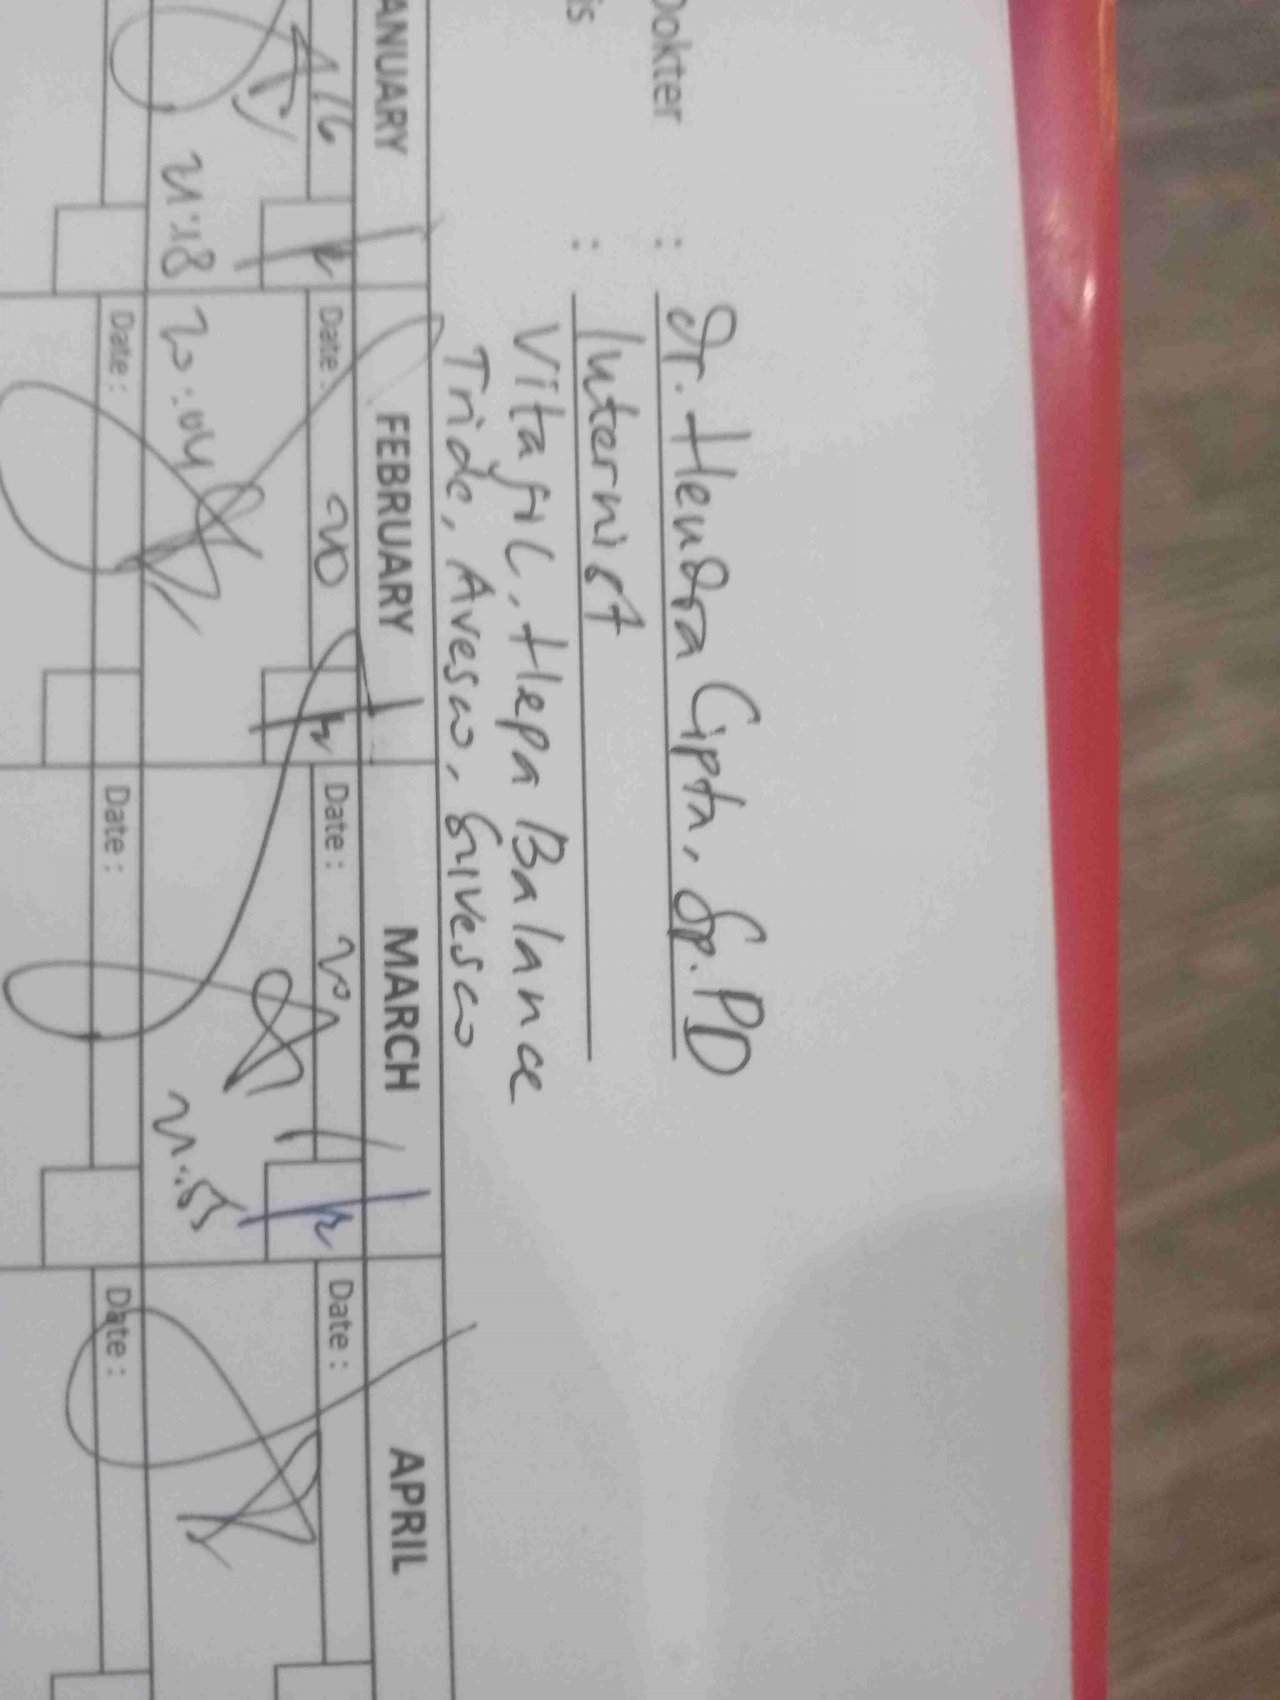 Dokter : dr. Hendra Cipta, Sp.PD
is : Internist
Vitafil, Hepa Balance
Tride, Avesco, Givesco
ANUARY FEBRUARY MARCH APRIL
16 Date: 20 Date: 20 Date:
21:18 20:04 21:55
Date: Date: Date: